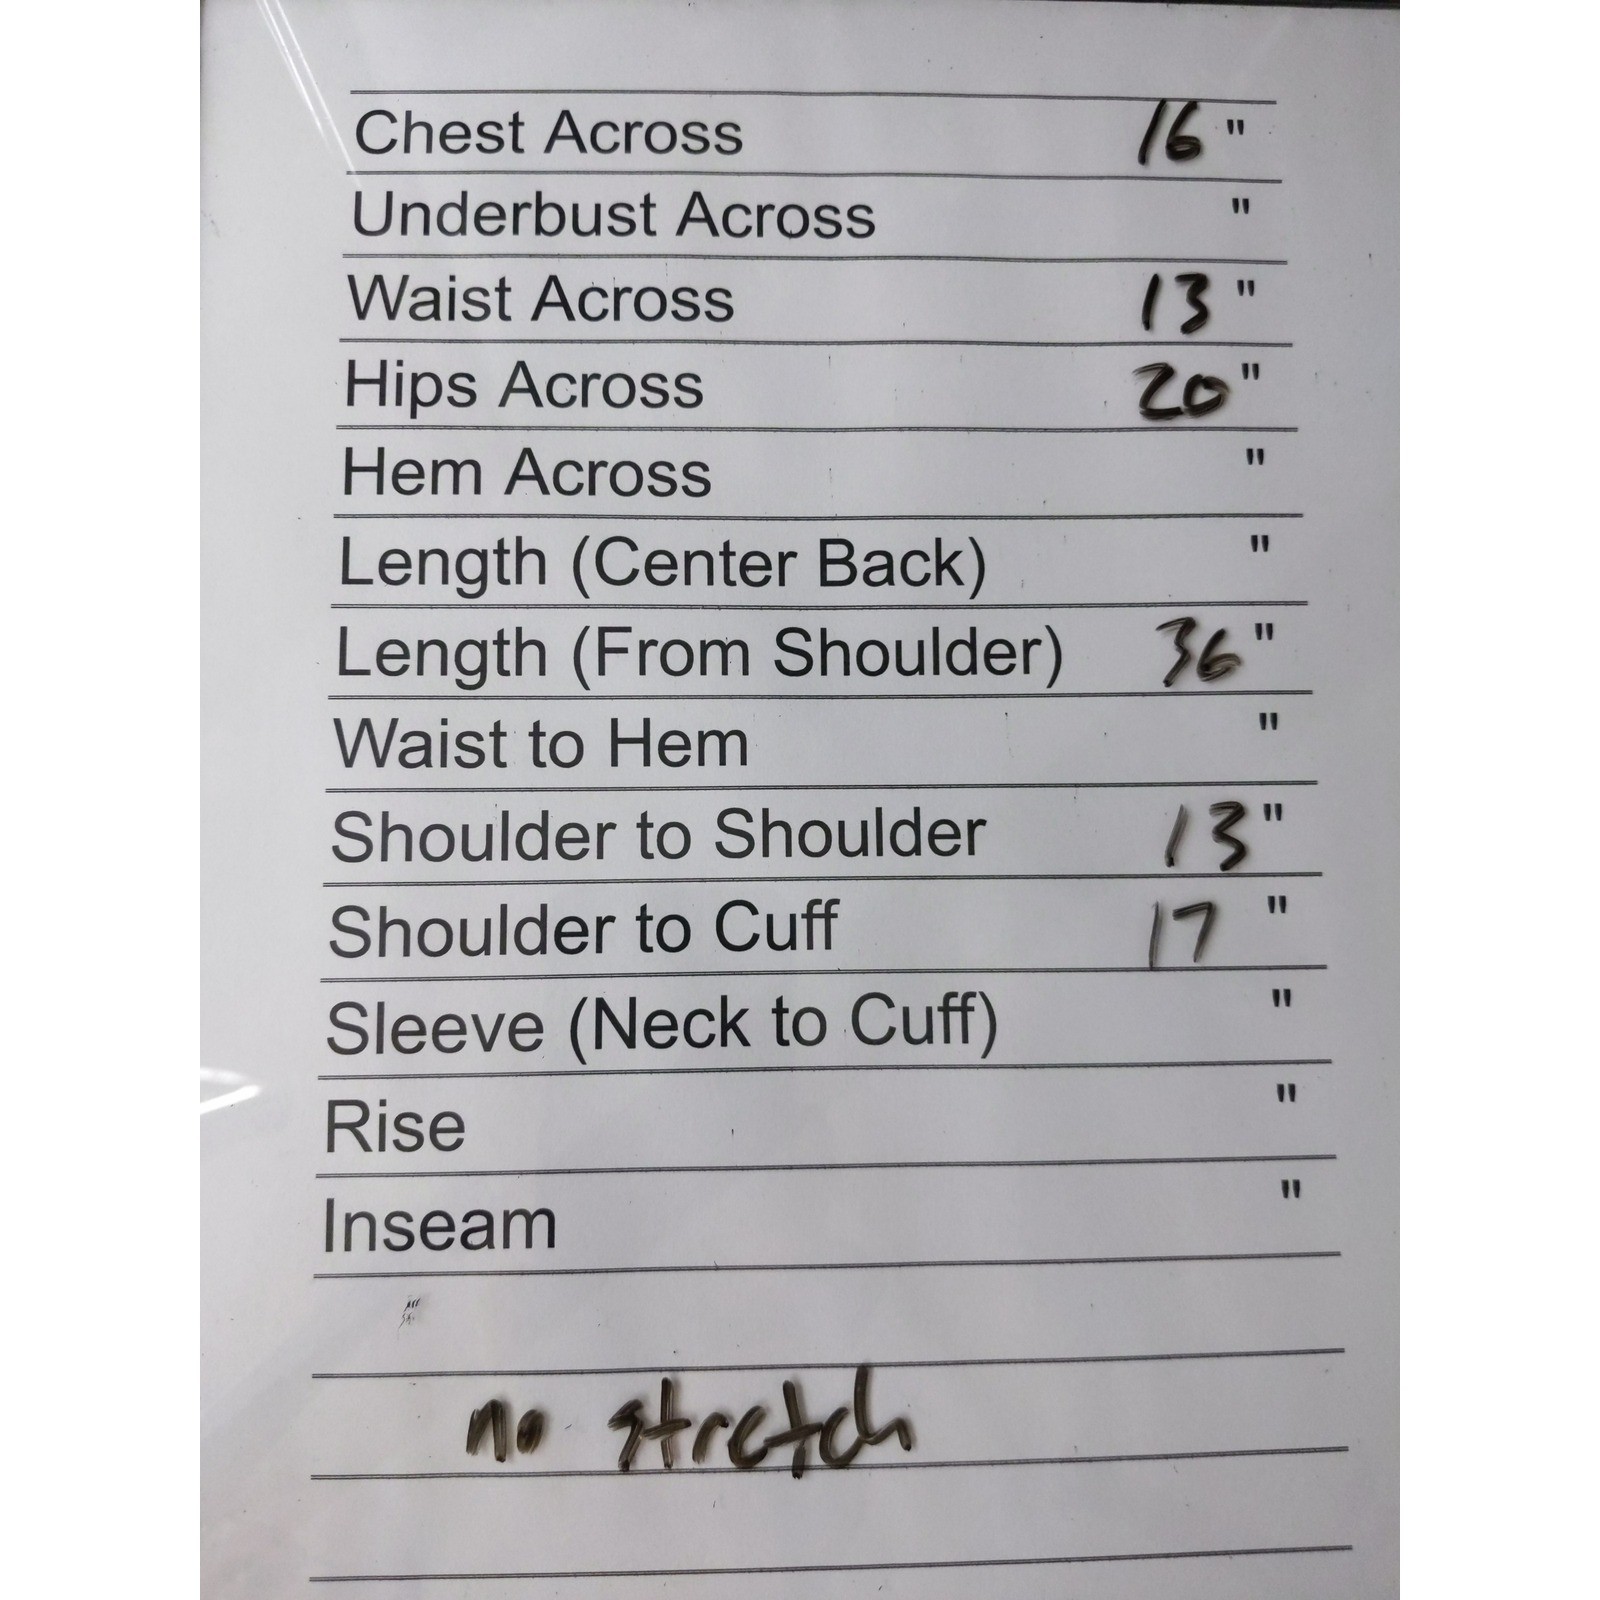 Chest Across 16 "
Underbust Across "
Waist Across 13 "
Hips Across 20 "
Hem Across "
Length (Center Back) "
Length (From Shoulder) 36 "
Waist to Hem "
Shoulder to Shoulder 13 "
Shoulder to Cuff 17 "
Sleeve (Neck to Cuff) "
Rise "
Inseam "
no stretch